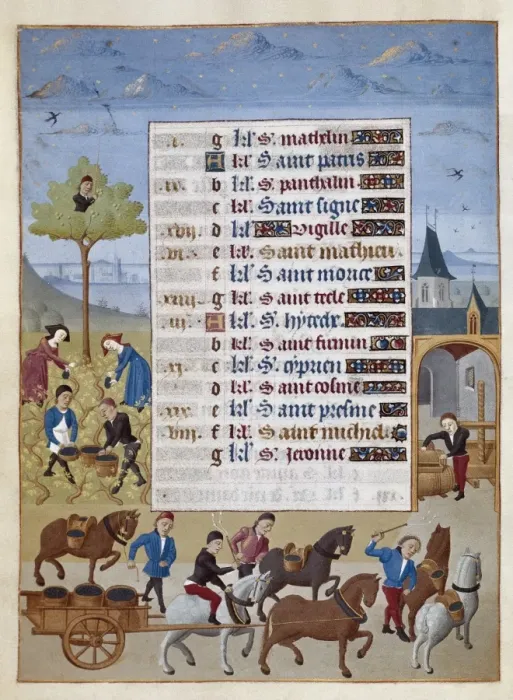 g kl' S. mathelin
A kl' Saint patris
b kl' S. panthalin
c kl' Saint signe
xvij. d kl' Vigille
vi. e kl' Saint mathieu.
f kl' Saint morice
xiiij. g kl' Saint tecle
iij. A kl' S.
b kl' Saint fumin
xi. c kl' S. cyprien
d kl' Saint cosme
xix. e kl' Saint presme
viij. f kl' Saint michiel
g kl' S. jeronne